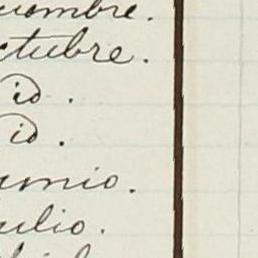 viembre.
ctubre.
id.
id.
unio.
ulio.